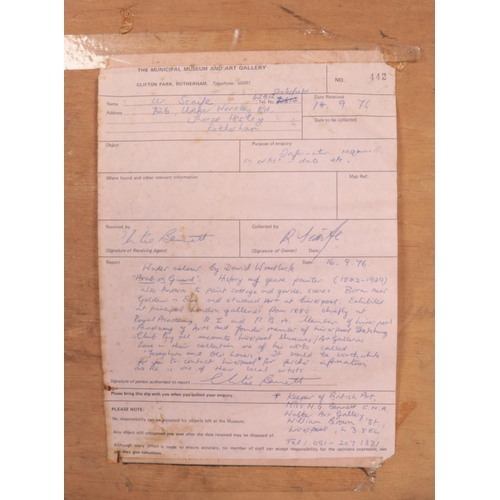 THE MUNICIPAL MUSEUM AND ART GALLERY
CLIFTON PARK, ROTHERHAM. Telephone:
NO. 442
Name W. Scaife Tel. No. Date Received
14. 9. 76
Address Upper Wortley Rd.
Date to be collected
Thorpe Hesley
Rotherham
Object Purpose of enquiry
Information required
on artist date etc.
Where found and other relevant information Map Ref:
Received by Collected by
Bennett R Scaife
Signature of Receiving Agent (Signature of Owner) Date:
Report Date 16.9.76
Water colour by David Woodlock
"Arab on Guard". History and genre painter (1842-1929)
also known to paint cottage and garden scenes. Born near
Golden in Eire and studied Art at Liverpool. Exhibited
at principal London galleries from 1880 chiefly at
Royal Academy R I and R B A. Member of Liverpool
Academy of Arts and founder member of Liverpool Sketching
Club. City of Liverpool Museums/Art Galleries
have in their collection one of his works called
"Josephus and the". It would be worth while
for you to contact Liverpool* for further information
as he is one of their local artists
Bennett
Signature of person authorised to report
Please bring this slip with you when you balance enquiry.
* Keeper of British Art,
M. Bennett E.M.A.
Walker Art Gallery
William Brown St,
Liverpool, L3 8EL
Tel: 051-207 1371
PLEASE NOTE:
No responsibility can be accepted for objects left at the Museum.
Any object still unclaimed one year after the date received may be disposed of.
Although every effort is made to ensure accuracy, no member of staff can accept responsibility for the opinions expressed, nor
they give valuations.